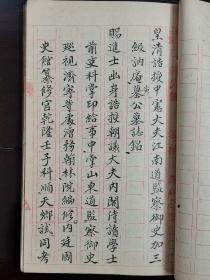 皇清誥授中憲大夫江南道監察御史加三
級訥庵黄公墓誌銘
賜進士出身誥授朝議大夫內閣侍讀學士
前吏科掌印給事中掌山東道監察御史
巡視濟寧等處漕務翰林院編修內廷國
史館纂修官乾隆壬子科順天鄉試同考